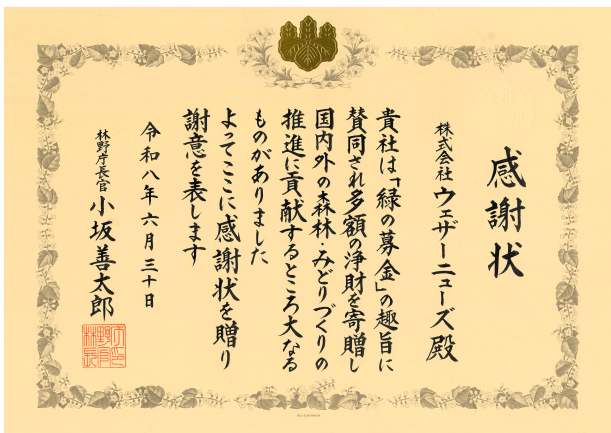 感謝状
株式会社 ウェザーニューズ 殿
貴社は「緑の募金」の趣旨に
賛同され多額の浄財を寄贈し
国内外の森林・みどりづくりの
推進に貢献するところ大なる
ものがありました
よってここに感謝状を贈り
謝意を表します
令和八年六月三十日
林野庁長官 小坂善太郎